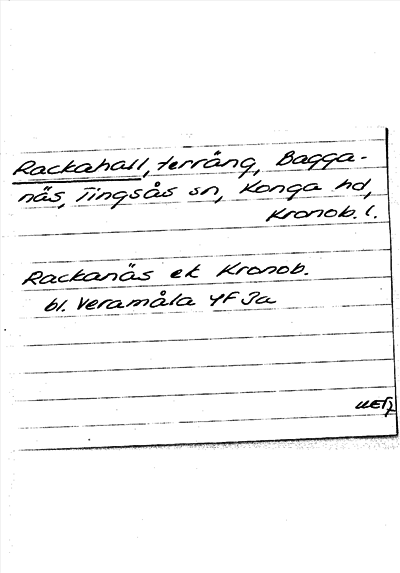 Rackahall, terräng, Bagga-
näs, Tingsås sn, Konga hd,
Kronob. l.
Rackanäs ek Kronob.
bl. Veramåla 4F Ja